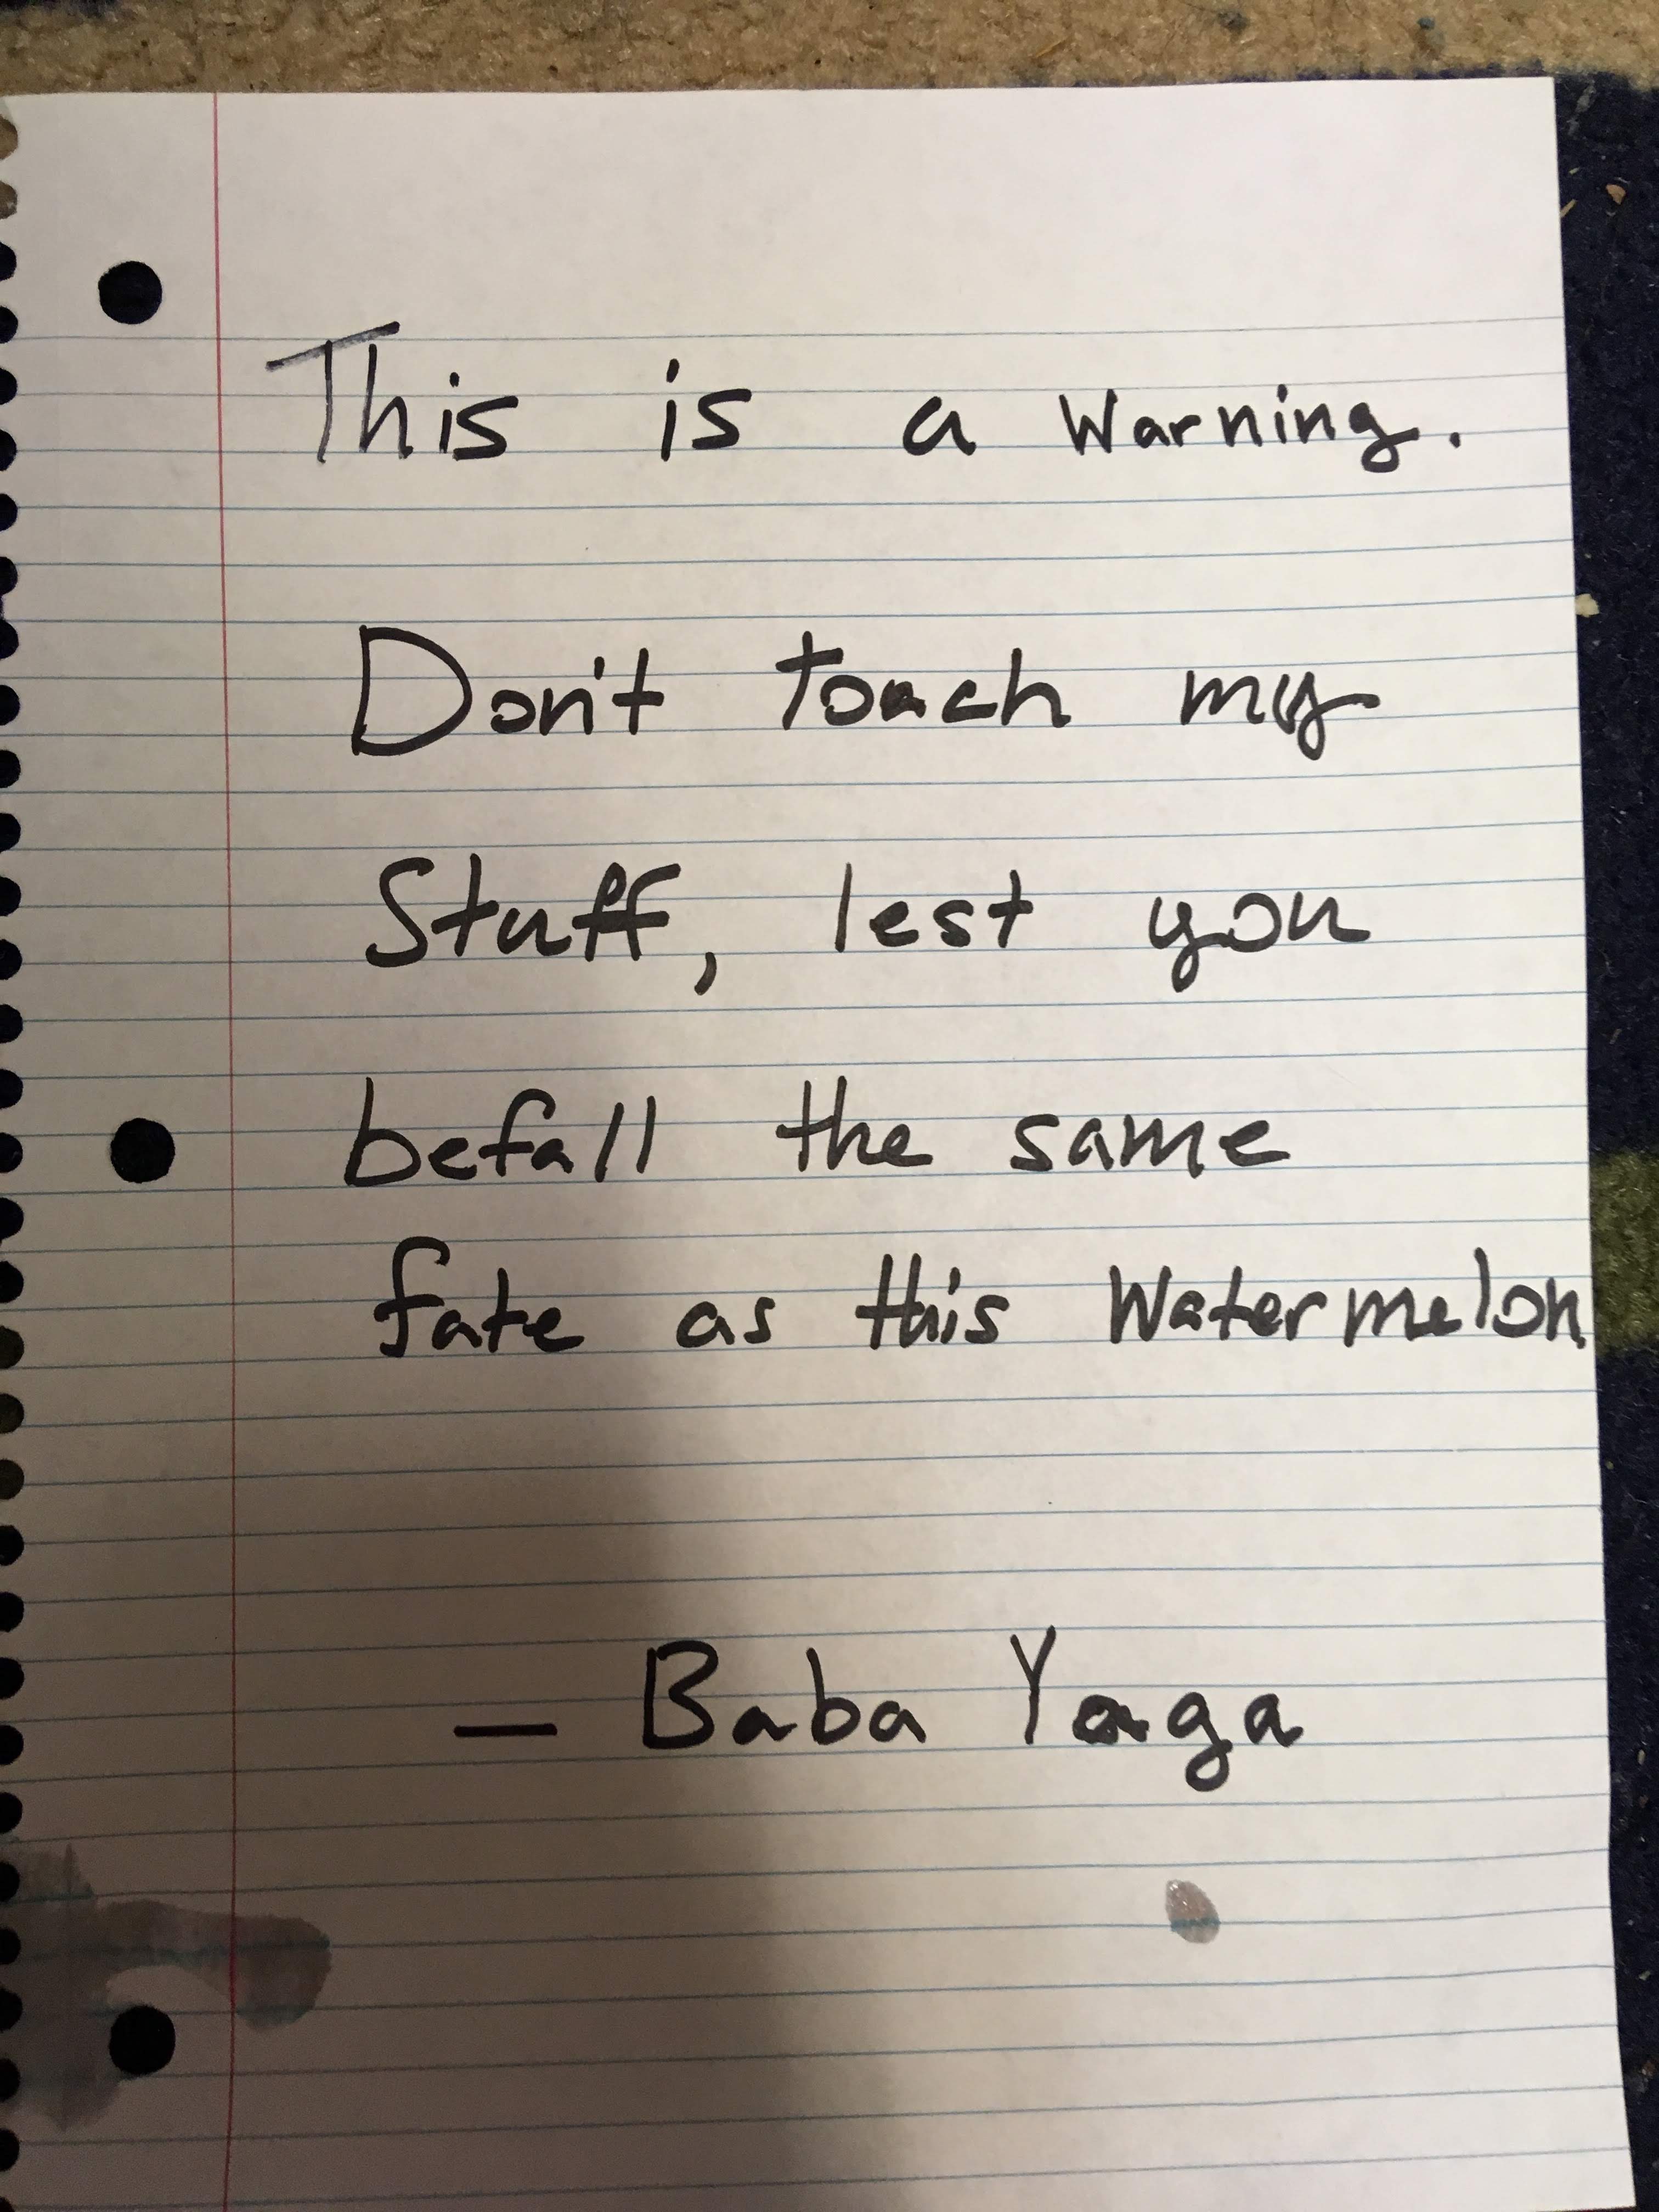 This is a Warning.
Don't touch my
Stuff, lest you
befall the same
fate as this Watermelon
— Baba Yaga